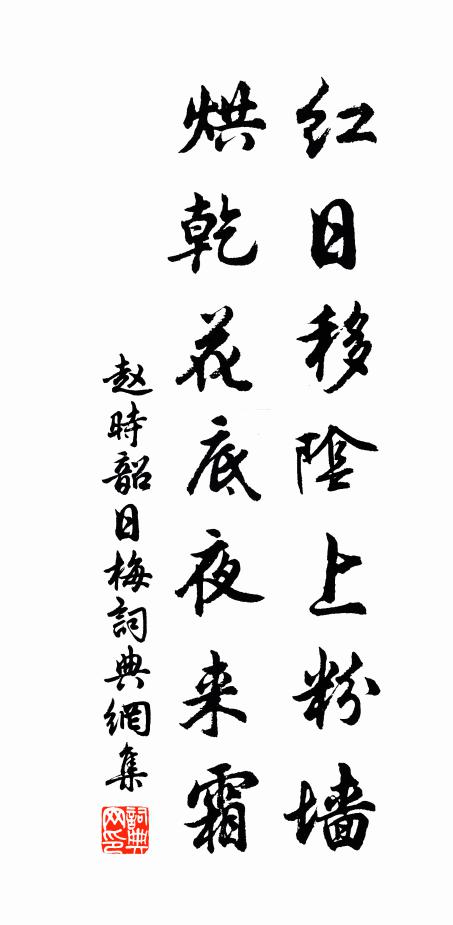 红日移陰上粉墙
烘乾花底夜来霜
赵時韶日梅詞典網集
詞典网印